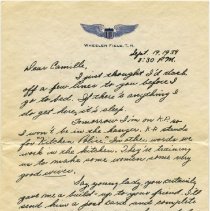 WHEELER FIELD, T.H.
Sept. 19, 1939
8:30 P.M.
Dear Camille,
I just thought I'd dash
off a few lines to you before I
go to bed. If there's anything I
do get here, it's sleep.
Tomorrow I'm on K.P. so
I won't be in the hangar. K.P. stands
for "Kitchen Police". In other words
wash up the kitchen. They're training
us to make some women some very
good wives.
Say young lady, you certainly
gave me a build-up to your friend. I'll
send him a post card and complete